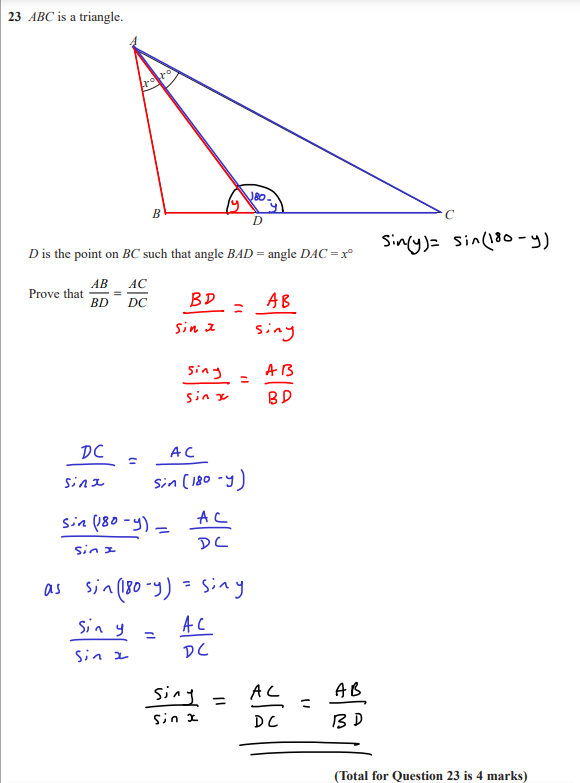 23 ABC is a triangle.
A
x° x°
y 180-y
B D C
sin(y) = sin(180-y)
D is the point on BC such that angle BAD = angle DAC = x°
Prove that AB/BD = AC/DC
BD/sin x = AB/sin y
sin y/sin x = AB/BD
DC/sin x = AC/sin(180-y)
sin(180-y)/sin x = AC/DC
as sin(180-y) = sin y
sin y/sin x = AC/DC
sin y/sin x = AC/DC = AB/BD
(Total for Question 23 is 4 marks)